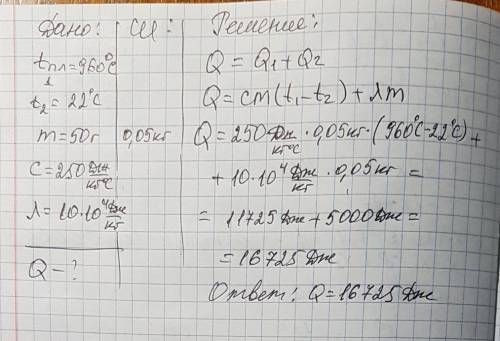 Дано:
СИ:
Решение:
tпл1=960°C
t2=22°C
m=50г
0,05кг
c=250 Дж/кг°C
λ=10·10⁴ Дж/кг
Q-?
Q=Q1+Q2
Q=cm(t1-t2)+λm
Q=250 Дж/кг°C·0,05кг·(960°C-22°C)+
+10·10⁴ Дж/кг·0,05кг=
=11725Дж+5000Дж=
=16725Дж
Ответ: Q=16725Дж